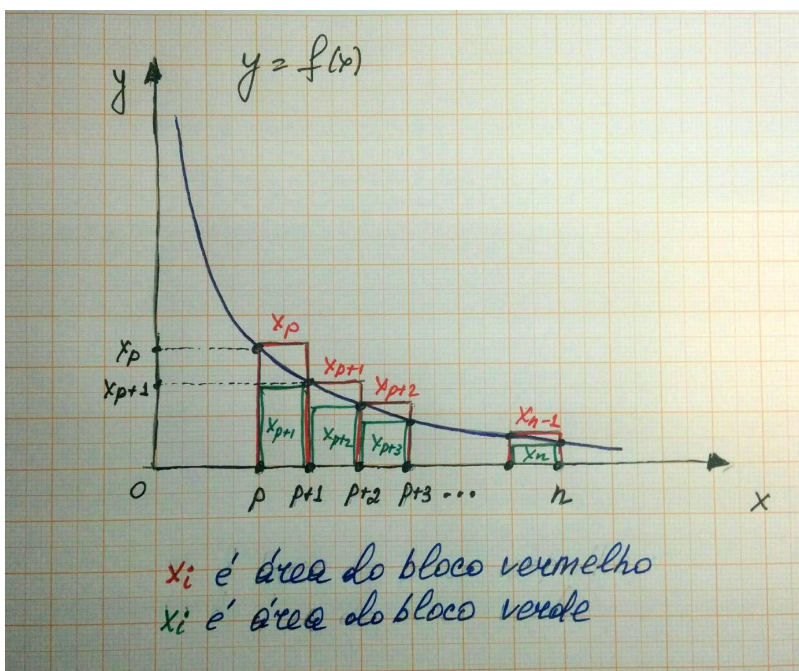 y = f(x)
y
x_p
x_p
x_{p+1}
x_{p+1}
x_{p+2}
x_{n-1}
x_{p+1}
x_{p+2}
x_{p+3}
x_n
0 p p+1 p+2 p+3 ... n x
x_i é área do bloco vermelho
x_i é área do bloco verde